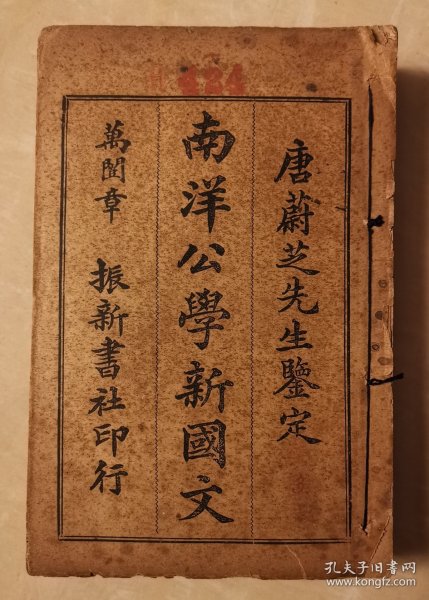 唐蔚芝先生鑒定
南洋公學新國文
萬閏章 振新書社印行
424
孔夫子旧书网
www.kongfz.com